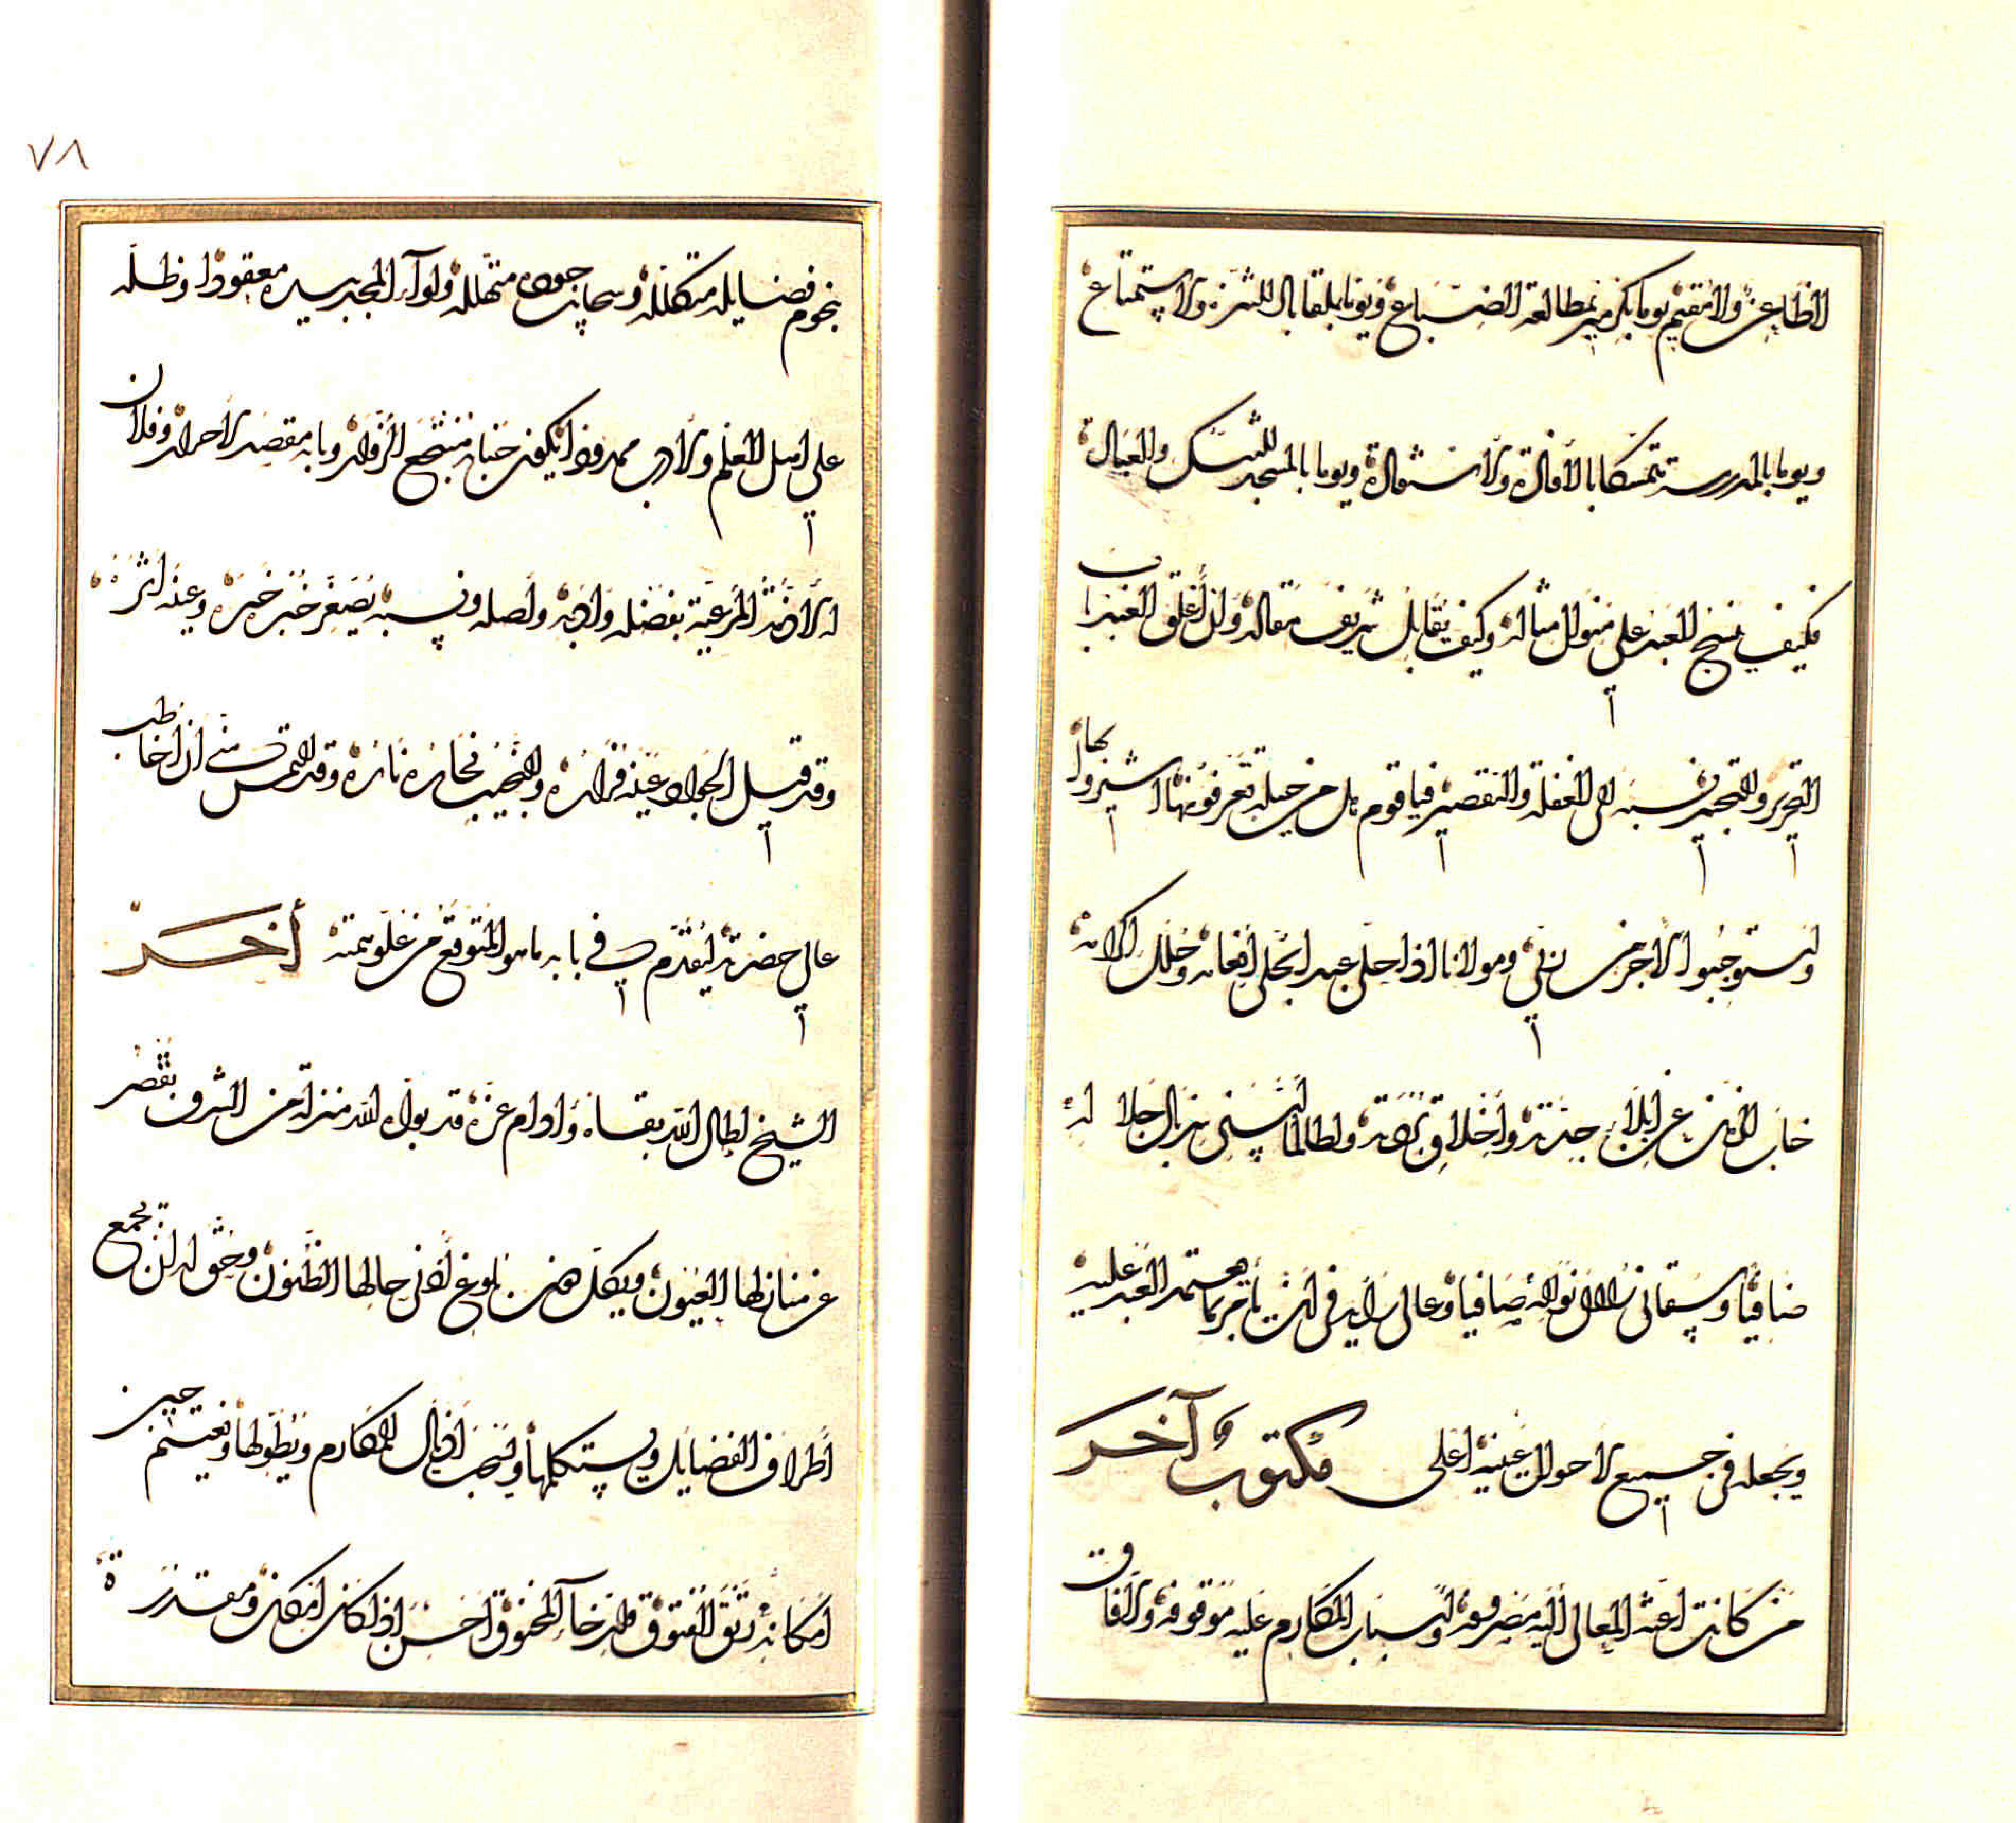 الظاعن والمقيم يوما يكرمه بمطالعة الضياع ويوما بلقابال للتنزه والاستمتاع
ويوما بالمدرسة متمسكا بالافادة والاستفادة ويوما بالمسجد للتنسك والعبادة
فكيف ينسج العبد على منوال مثاله وكيف يقابل شريف مقاله وان أغلق العبد باب
التحرير والتحبير نسبه الى الغفلة والتقصير فيا قوم هل من حيلة تعرفونها اشيروا بها
واستوجبوا الاجر مني ومولانا اذا حلى عبدا بحلى افعاله وخلل اكرامه
خاب الزمن عن ابلاء جدته واخلاق بردته ولطالما البسني سربال جلاله
ضافيا وسقاني زلال نواله صافيا وعالى رايه في ان يأمر بما يعتمد العبد عليه
ويجعله في جميع الاحوال نصب عينيه اعلى مكتوب آخر
من كانت اعنة المعالي اليه مصروفة واسباب المكارم عليه موقوفة والافاق
٧٨
نجوم فضايله متكللة وسحايب جوده متهللة ولواء المجد بيده معقودا وظله
على اهل العلم والادب ممدودا يكون جنابه منتجع الرواد وبابه مقصد الاحرار وفلان
له الاذمة المرعية بفضله وادبه واصله ونسبه يصغر خبر خبره وعينه اثره
وقد قيل الجواد عينه فراره والنجيب نجاره ناره وقد التمس مني ان اخاطب
عالي حضرته ليقدم في بابه ما هو المتوقع من علو همته أخر
الشيخ اطال الله بقاءه وادام عزه قد بوأه الله منزلة من الشرف تقصر
عن منالها العيون ويكل دون بلوغ أدنى حالها الظنون وحق له ان يجمع
أطراف الفضايل ويستكملها ويسحب اذيال المكارم ويطولها ويغتنم حين
امكانه رتق الفتوق وارخاء المخنوق احسن اذا كان امكن ومقدرة